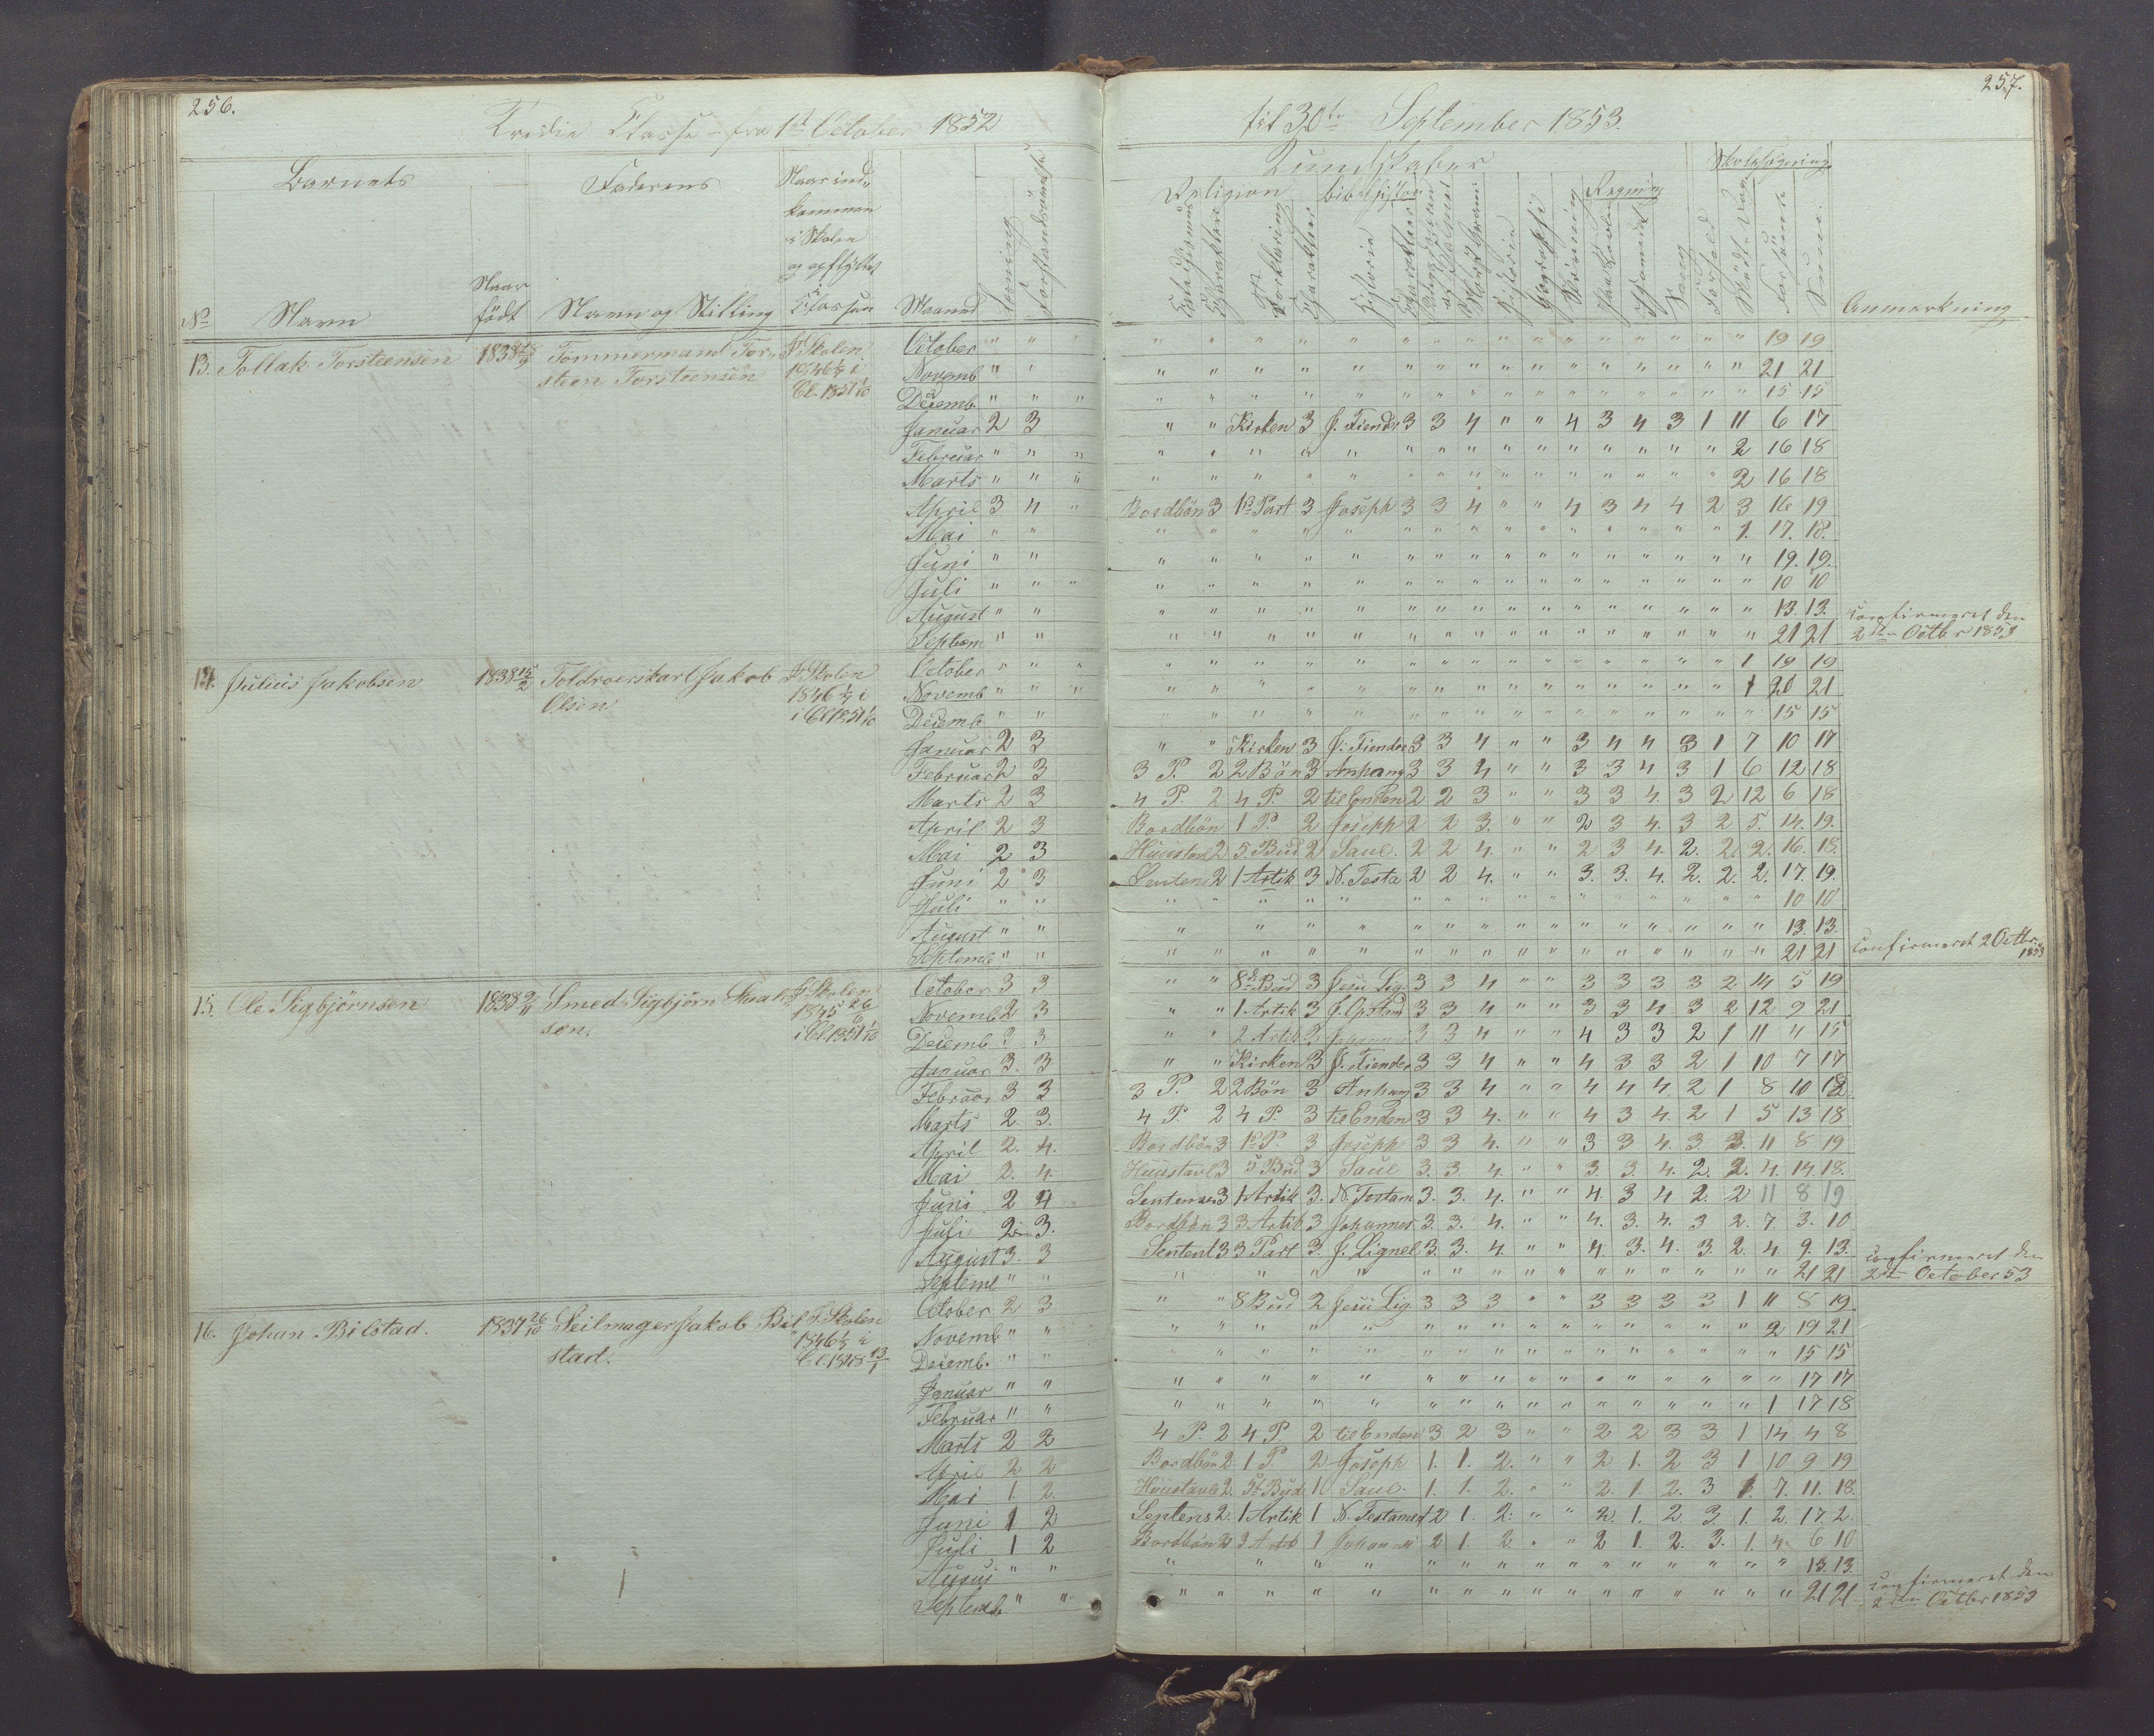 256.
Tredie Classe - fra 1st October 1852
Barnets
Faderens
Naar ind-
kommen
i Skolen
og opflyttet
i
Classen
No
Navn
Naar
født
Navn og Stilling
Maaned
Læsning
Forstandsøvelse
13. Tollak Torsteensen 1838 Tømmermand Tor-
steen Torsteensen
I Skolen
1846 i
Cl. 1851 1/10
October " "
Novemb " "
Decemb. " " "
Januar 2 3
Februar " " "
Marts " " "
April 3 4 "
Mai " "
Juni " "
Juli " " "
August " "
Septem " "
14. Julius Jakobsen 1838 15/2 Toldroerskarl Jakob
Olsen
I Skolen
1846 i
i Cl 1851 1/10
October " " "
Novemb " " "
Decemb " "
Januar 2 3
Februar 2 3
Marts 2 3
April 2 3
Mai 2 3
Juni 2 3
Juli " "
August " "
Septemb " "
15. Ole Sigbjørnsen 1838 Smed Sigbjørn
sen.
I Skolen
1845 26/6
i Cl. 1851 1/10
October 3 3
Novemb 2 3
Decemb 3 3
Januar 3. 3
Februar 3 3
Marts 2. 3.
April 2. 4.
Mai 2. 4
Juni 2 4
Juli 2 3.
August 3. 3
Septemb " "
16. Johan Bilstad. 1837 26/10 Seilmager Jakob Bil-
stad.
I Skolen
1846 i
Cl. 1848 13/1
October 2 3
Novemb " "
Decemb. " "
Januar " "
Februar " "
Marts 2 2
April 2 2
Mai 1. 2.
Juni 1 2
Juli 1 2
August " "
Septemb. " "
257.
til 30te September 1853.
Kundskaber
Skolesøgning
Religion
bibelhistorie
Regning
Katechismus
Charakteer
Forklaring
Charakteer
Historie
Charakteer
Historie
Geografi
Skrivning
Sang
Forhold
Mødt
Forsømte
Summa.
Anmærkning
" " " " " " " " " " " " " " " " 19 19
" " " " " " " " " " " " " " " " 21 21
" " " " " " " " " " " " " " " " 15 15
" " Kirken 3 J. Fiender 3 3 4 " " 4 3 4 3 1 11 6 17
" " " " " " " " " " " " " " " 2 16 18
" " " " " " " " " " " " " " " 2 16 18
Bordbøn 3 1ste Part 3 Joseph 3 3 4 " " 4 3 4 4 2 3 16 19
" " " " " " " " " " " " " " " 1. 17. 18.
" " " " " " " " " " " " " " " " 19. 19.
" " " " " " " " " " " " " " " " 10 10
" " " " " " " " " " " " " " " " 13. 13.
" " " " " " " " " " " " " " " " 21 21
confirmeret den
2den Octbr 1853
" " " " " " " " " " " " " " " 1 18 19
" " " " " " " " " " " " " " " 1 20 21
" " " " " " " " " " " " " " " " 15 15
" " Kirken 3 J. Fiender 3 3 4 " " 3 4 4 3 1 7 10 17
3 P. 2 2 Bøn 3 Anhang 3 3 4 " " 3 3 4 3 1 6 12 18
4 P. 2 4 P. 2 til Enden 2 2 3 " " 3 3 4. 3 2 12 6 18
Bordbøn 1 P. 2 Joseph 2 2 3. " " 2 3 4. 3 2 5. 14. 19.
Huustavl 2 5. Bud 2 Saul. 2 2 4. " " 2 3 4. 2. 2. 2. 16. 18.
Sentens 2 1 Artik 3 N. Testa 2 2 4. " " 3. 3. 4. 2. 2. 2. 17. 19.
" " " " " " " " " " " " " " " " 10 10
" " " " " " " " " " " " " " " " 13. 13.
" " " " " " " " " " " " " " " " 21 21
confirmeret 2 Octbr.
1853
" " 8de Bud 3 Jesu Lig. 3 3 4 " " 3 3 3 3 2 14 5 19
" " 1 Artik 3 J. Opstand 3 3 4 " " 3 3 4 3 2 12 9 21
" " 2 Artik 3 Johannes 3 3 4 " " 4 3 3 2 1 11 4 15
" " Kirken 3 J. Fiender 3 3 4 " " 4 3 3 2 1 10 7 17
3 P. 2 2 Bøn 3 Anhang 3 3 4 " " 4 4 4 2 1 8 10 18
4 P. 2 4 P. 3 til Enden 3 3 4. " " 4 3 4. 2 1 5 13 18
Bordbøn 3 1ste P. 3 Joseph 3 3 4. " " 3 3 4. 3. 3. 11 8 19
Huustavl 3 5 Bud 3 Saul 3. 3. 4. " " 3. 3. 4. 2. 2. 4. 14. 18.
Sentenser 3 1 Artik 3. N. Testam 3. 3. 4. " " 4. 3 4 2. 2 11 8 19
Bordbøn 3 3. Artik 3 Johannes 3. 3. 4. " " 4. 3. 4. 3 2. 7. 3. 10
Sentent 3 3 Part 3. J. Lignel 3. 3. 4. " " 4. 3. 4. 3. 2. 4. 9. 13.
" " " " " " " " " " " " " " " " 21 21
confirmeret den
2den October 53
" " 8 Bud 2 Jesu Lig. 3 3 3 " " 3 3 3 3 1 11 8 19
" " " " " " " " " " " " " " " 2 19 21
" " " " " " " " " " " " " " " " 15 15
" " " " " " " " " " " " " " " " 17 17
" " " " " " " " " " " " " " " 1 17 18
4 P. 2 4 P. 2 til Enden 3 2 3 " " 2 2 3 3 1 14 4 8
Bordbøn 2 1 P 2 Joseph 1. 1. 2. " " 2 1. 2 3 1 10 9 19
Huustavle 2. 5te Bud 1 Saul. 1. 1. 2. " " 2. 1. 2. 3 1. 7. 11. 18.
Sentens 2. 1 Artik 1 N. Testament 2 1. 2. " " 2. 1. 2. 3. 1. 2. 17. 2.
Bordbøn 2 3 Artik 1 Johannes 2 1. 2. " " 2 1. 2. 3. 1. 4. 6 10
" " " " " " " " " " " " " " " " 13. 13.
" " " " " " " " " " " " " " " " 21 21
confirmeret den
2den Octbr 1853